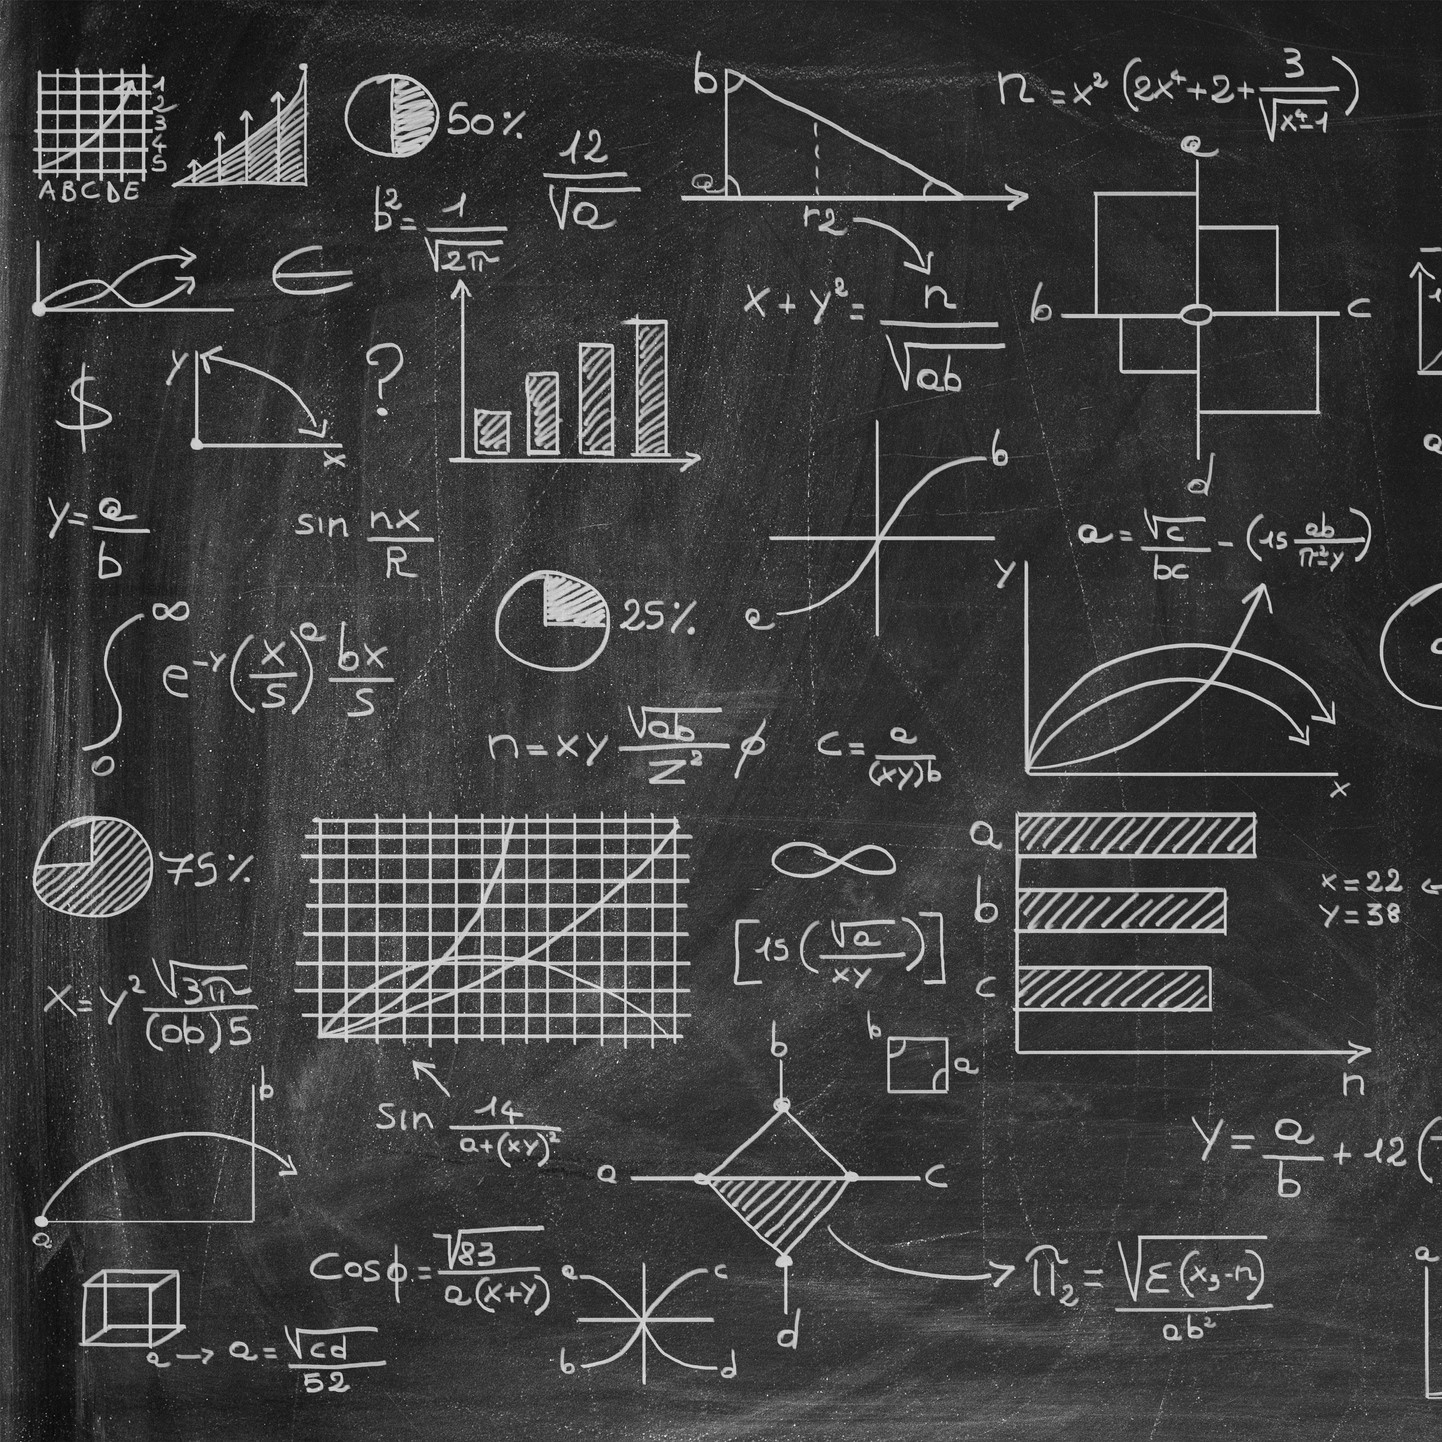 1
2
3
4
5
A B C D E
50%
b² = 1/√2π
12/√a
b
a
r2
x + y² = n/√ab
n = x² (2x⁴ + 2 + 3/√x⁴-1)
a
b
c
d
$
y
x
?
y = a/b
sin nx/R
a
b
a = √c/bc - (15 ab/π²-y)
∫ ∞ 0 e^-y (x/s)^a bx/s
25%
n = xy √ab/z² ϕ
c = a/(xy)b
y
x
75%
∞
[15 (√a/xy)]
a
b
c
n
x = 22
y = 38
x = y² √3π/(ab)5
b
a
sin 14/a+(xy)²
b
a
a
b
c
d
y = a/b + 12 (
b
a
cosϕ = √83/a(x+y)
a
b
c
d
π₂ = √Σ(x₃-n)/ab²
a → a = √cd/52
a